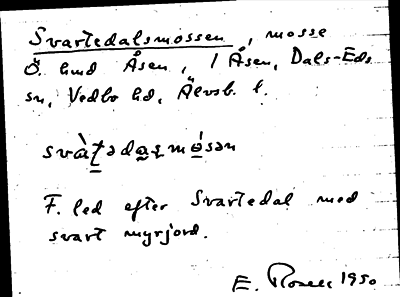 Svartedalsmossen, mosse
Ö. hmd Åsen, 1 Åsen, Dals-Eds
sn, Vedbo hd, Älvsb. l.
svàṯəda̱ɽmó̱sən
F. led efter Svartedal med
svart myrjord.
E. 1950